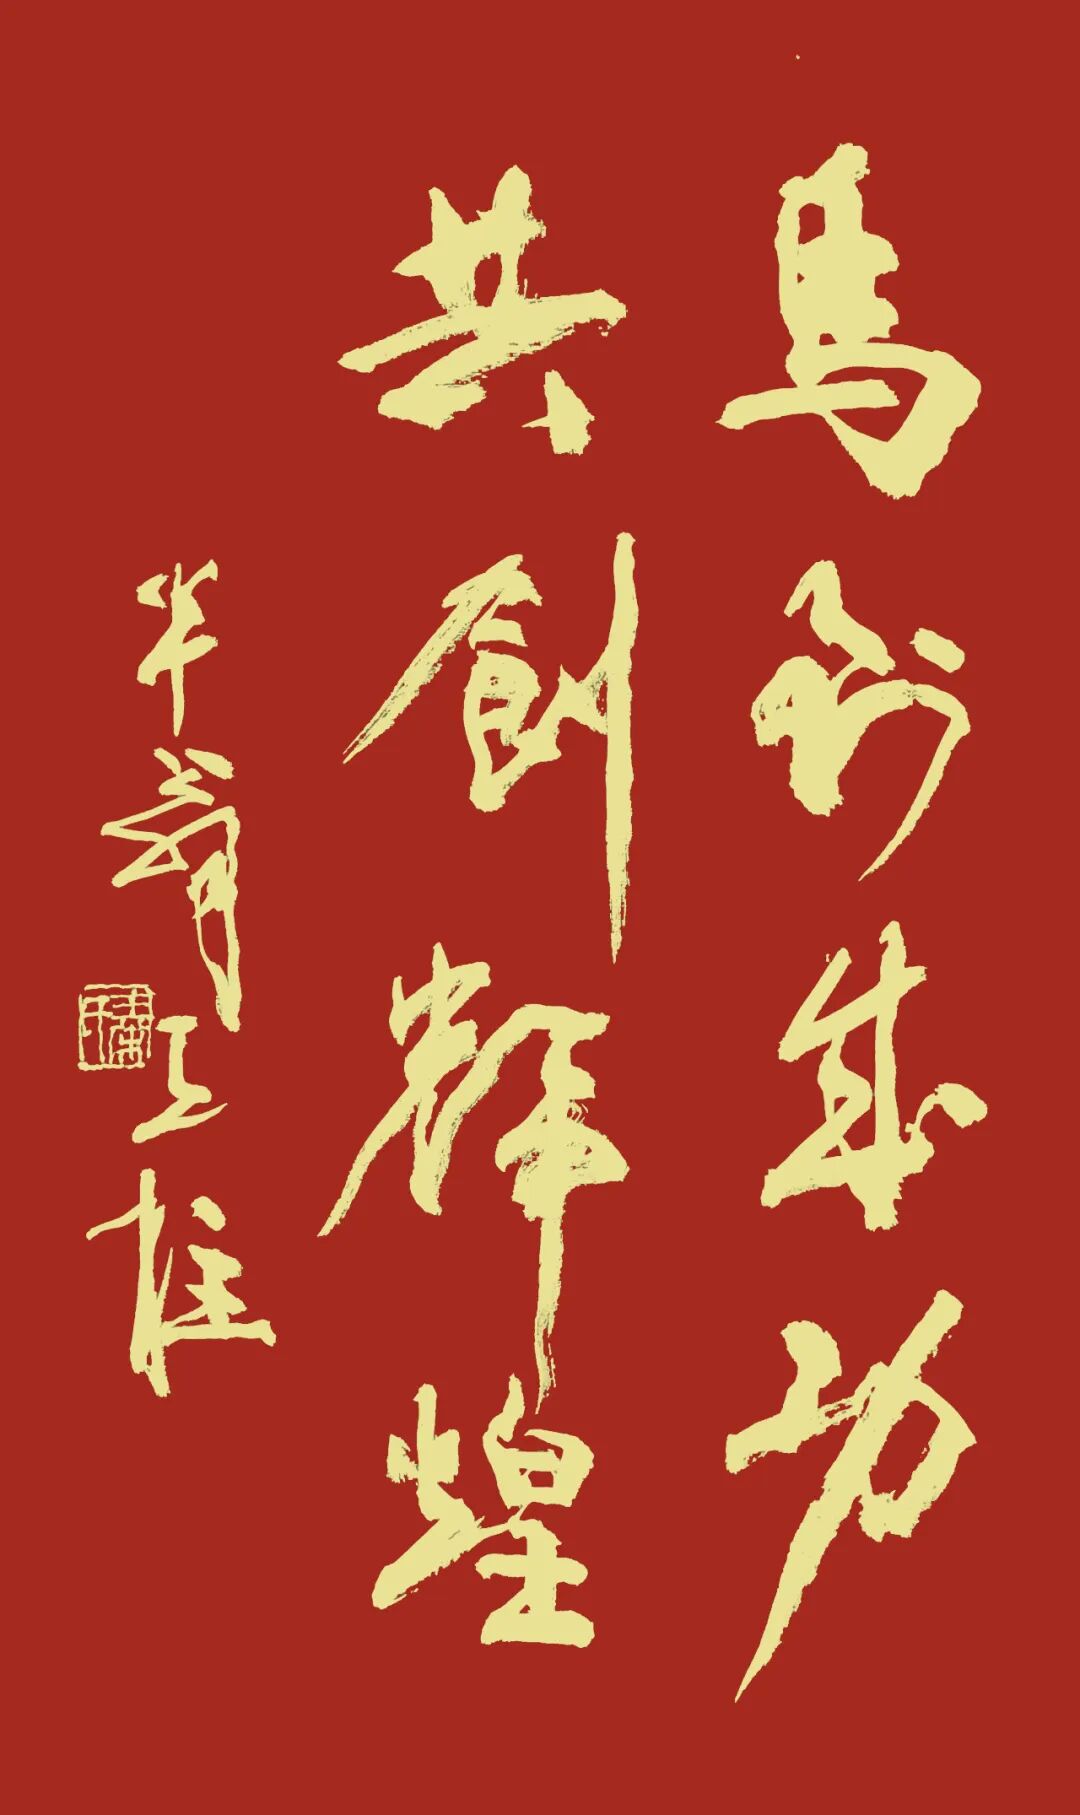 馬到成功
共創輝煌
半翁王柱